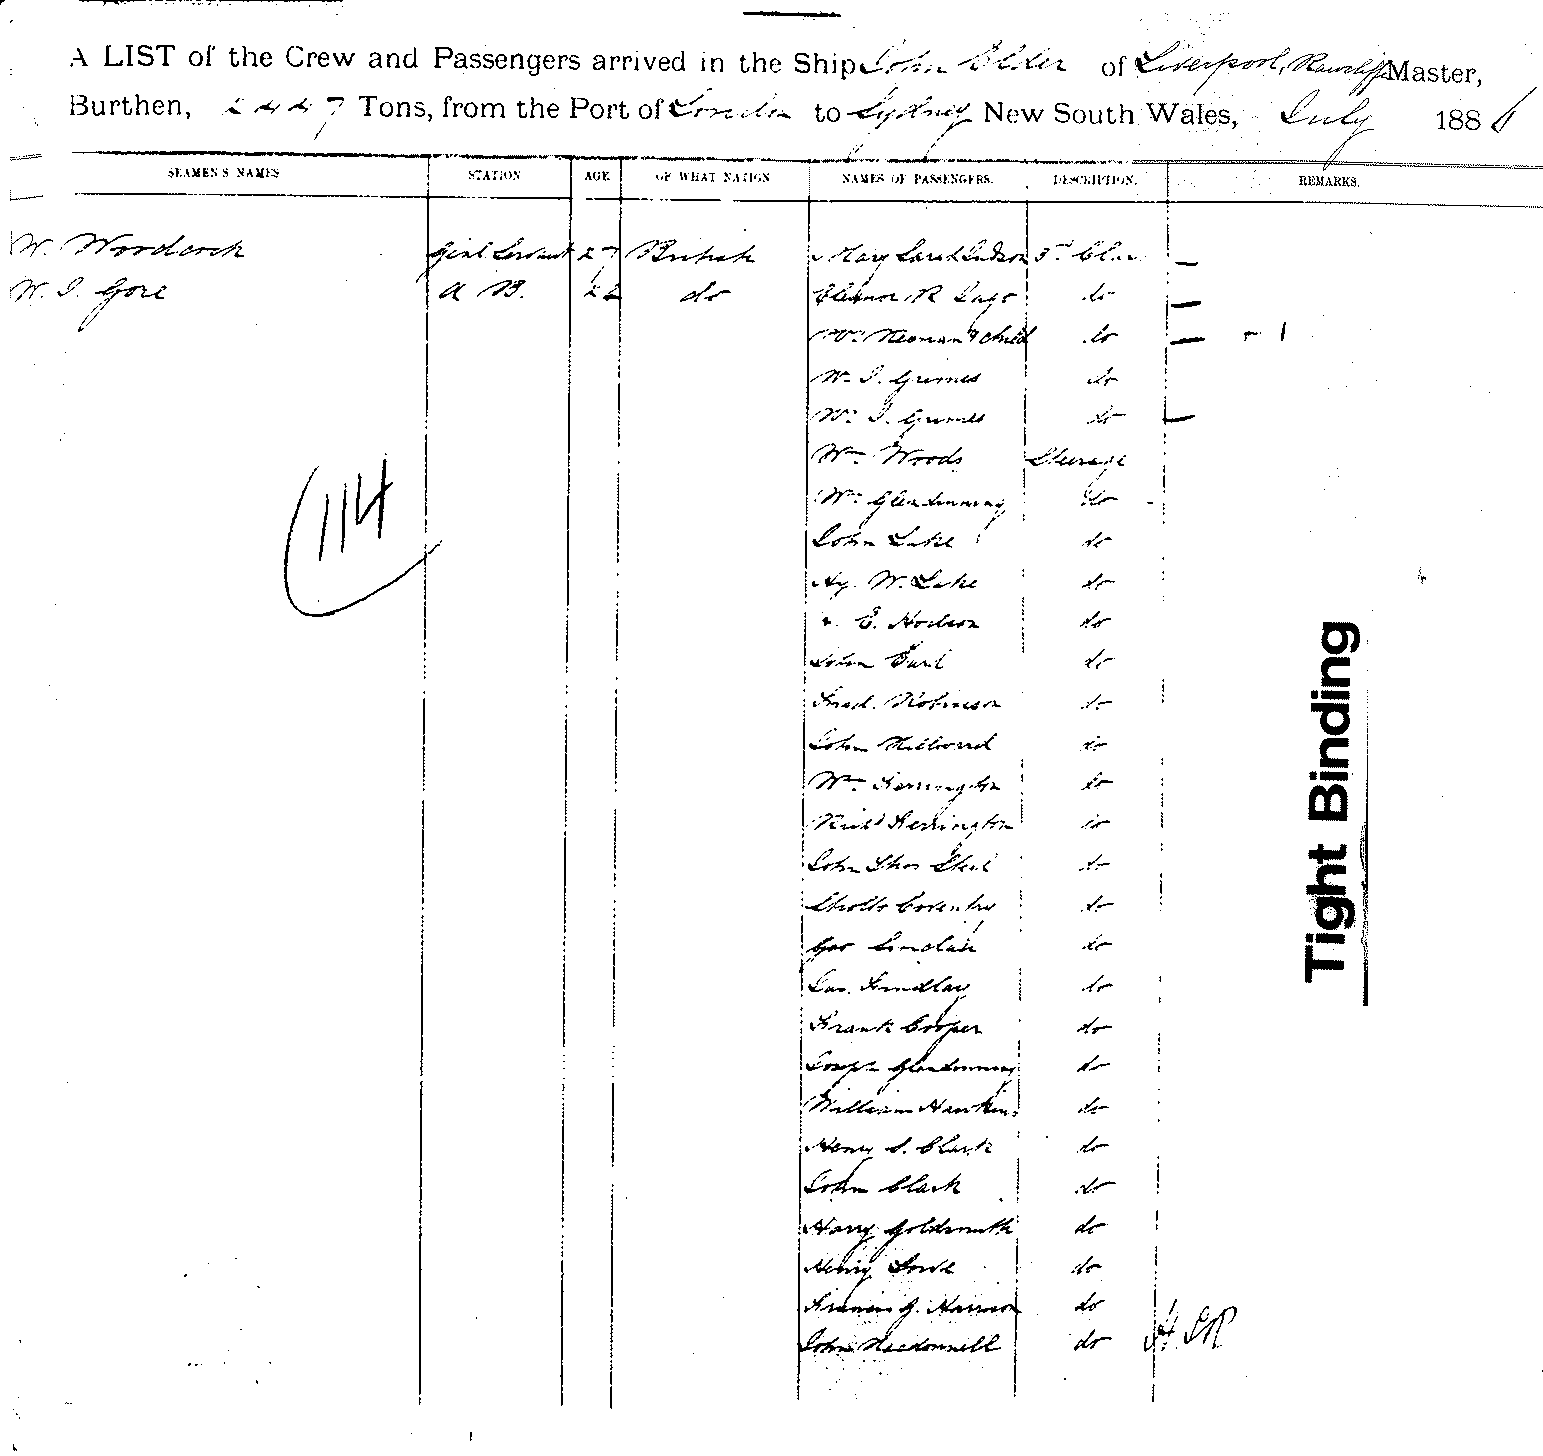 A LIST of the Crew and Passengers arrived in the Ship John Elder of Liverpool, Master,
Burthen, 2447 Tons, from the Port of London to Sydney New South Wales, July 1886
SEAMEN'S NAMES STATION AGE OF WHAT NATION NAMES OF PASSENGERS. DESCRIPTION. REMARKS.
W. Woodcock Genl Servant 27 British Mary Sarah 3rd Class
W. J. Gore A B. 22 do Eleanor R do
& child do
W. J. Grimes do
Wm J. Grimes do
Wm Woods Steerage
Wm Glendinning do
John Lake do
Hy. W. Lake do
E. Hodson do
John Earl do
Fred. Robinson do
John do
Wm do
Richd do
John Thos do
Coventry do
Geo Sinclair do
Jas. Findlay do
Frank Cooper do
Joseph Glendinning do
William Hawkins do
Henry S. Clark do
John Clark do
Harry Goldsmith do
Henry do
Francis G. Harrison do
John Macdonnell do
114
Tight Binding